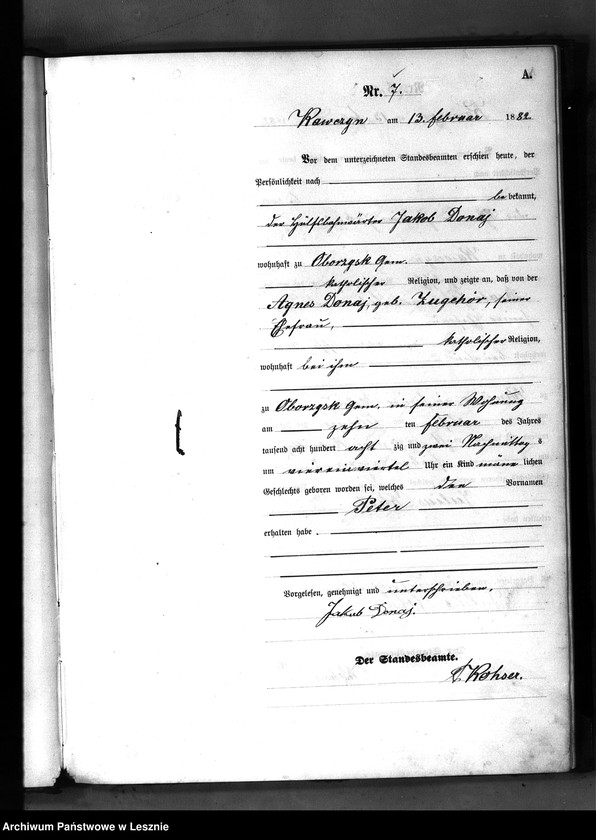 A.
Nr. 7.
Kawczyn am 13. Februar 1882.
Vor dem unterzeichneten Standesbeamten erschien heute, der
Persönlichkeit nach
bekannt,
der Hülfsbahnwärter Jakob Donaj
wohnhaft zu Oborzysk Gem.
katholischer Religion, und zeigte an, daß von der
Agnes Donaj, geb. Zugehör, seiner
Ehefrau,
katholischer Religion,
wohnhaft bei ihm
zu Oborzysk Gem. in seiner Wohnung
am zehn ten Februar des Jahres
tausend acht hundert acht zig und zwei Nachmittags
um vier ein viertel Uhr ein Kind männ lichen
Geschlechts geboren worden sei, welches den Vornamen
Peter
erhalten habe.
Vorgelesen, genehmigt und unterschrieben.
Jakob Donaj.
Der Standesbeamte.
Kohser.
Archiwum Państwowe w Lesznie